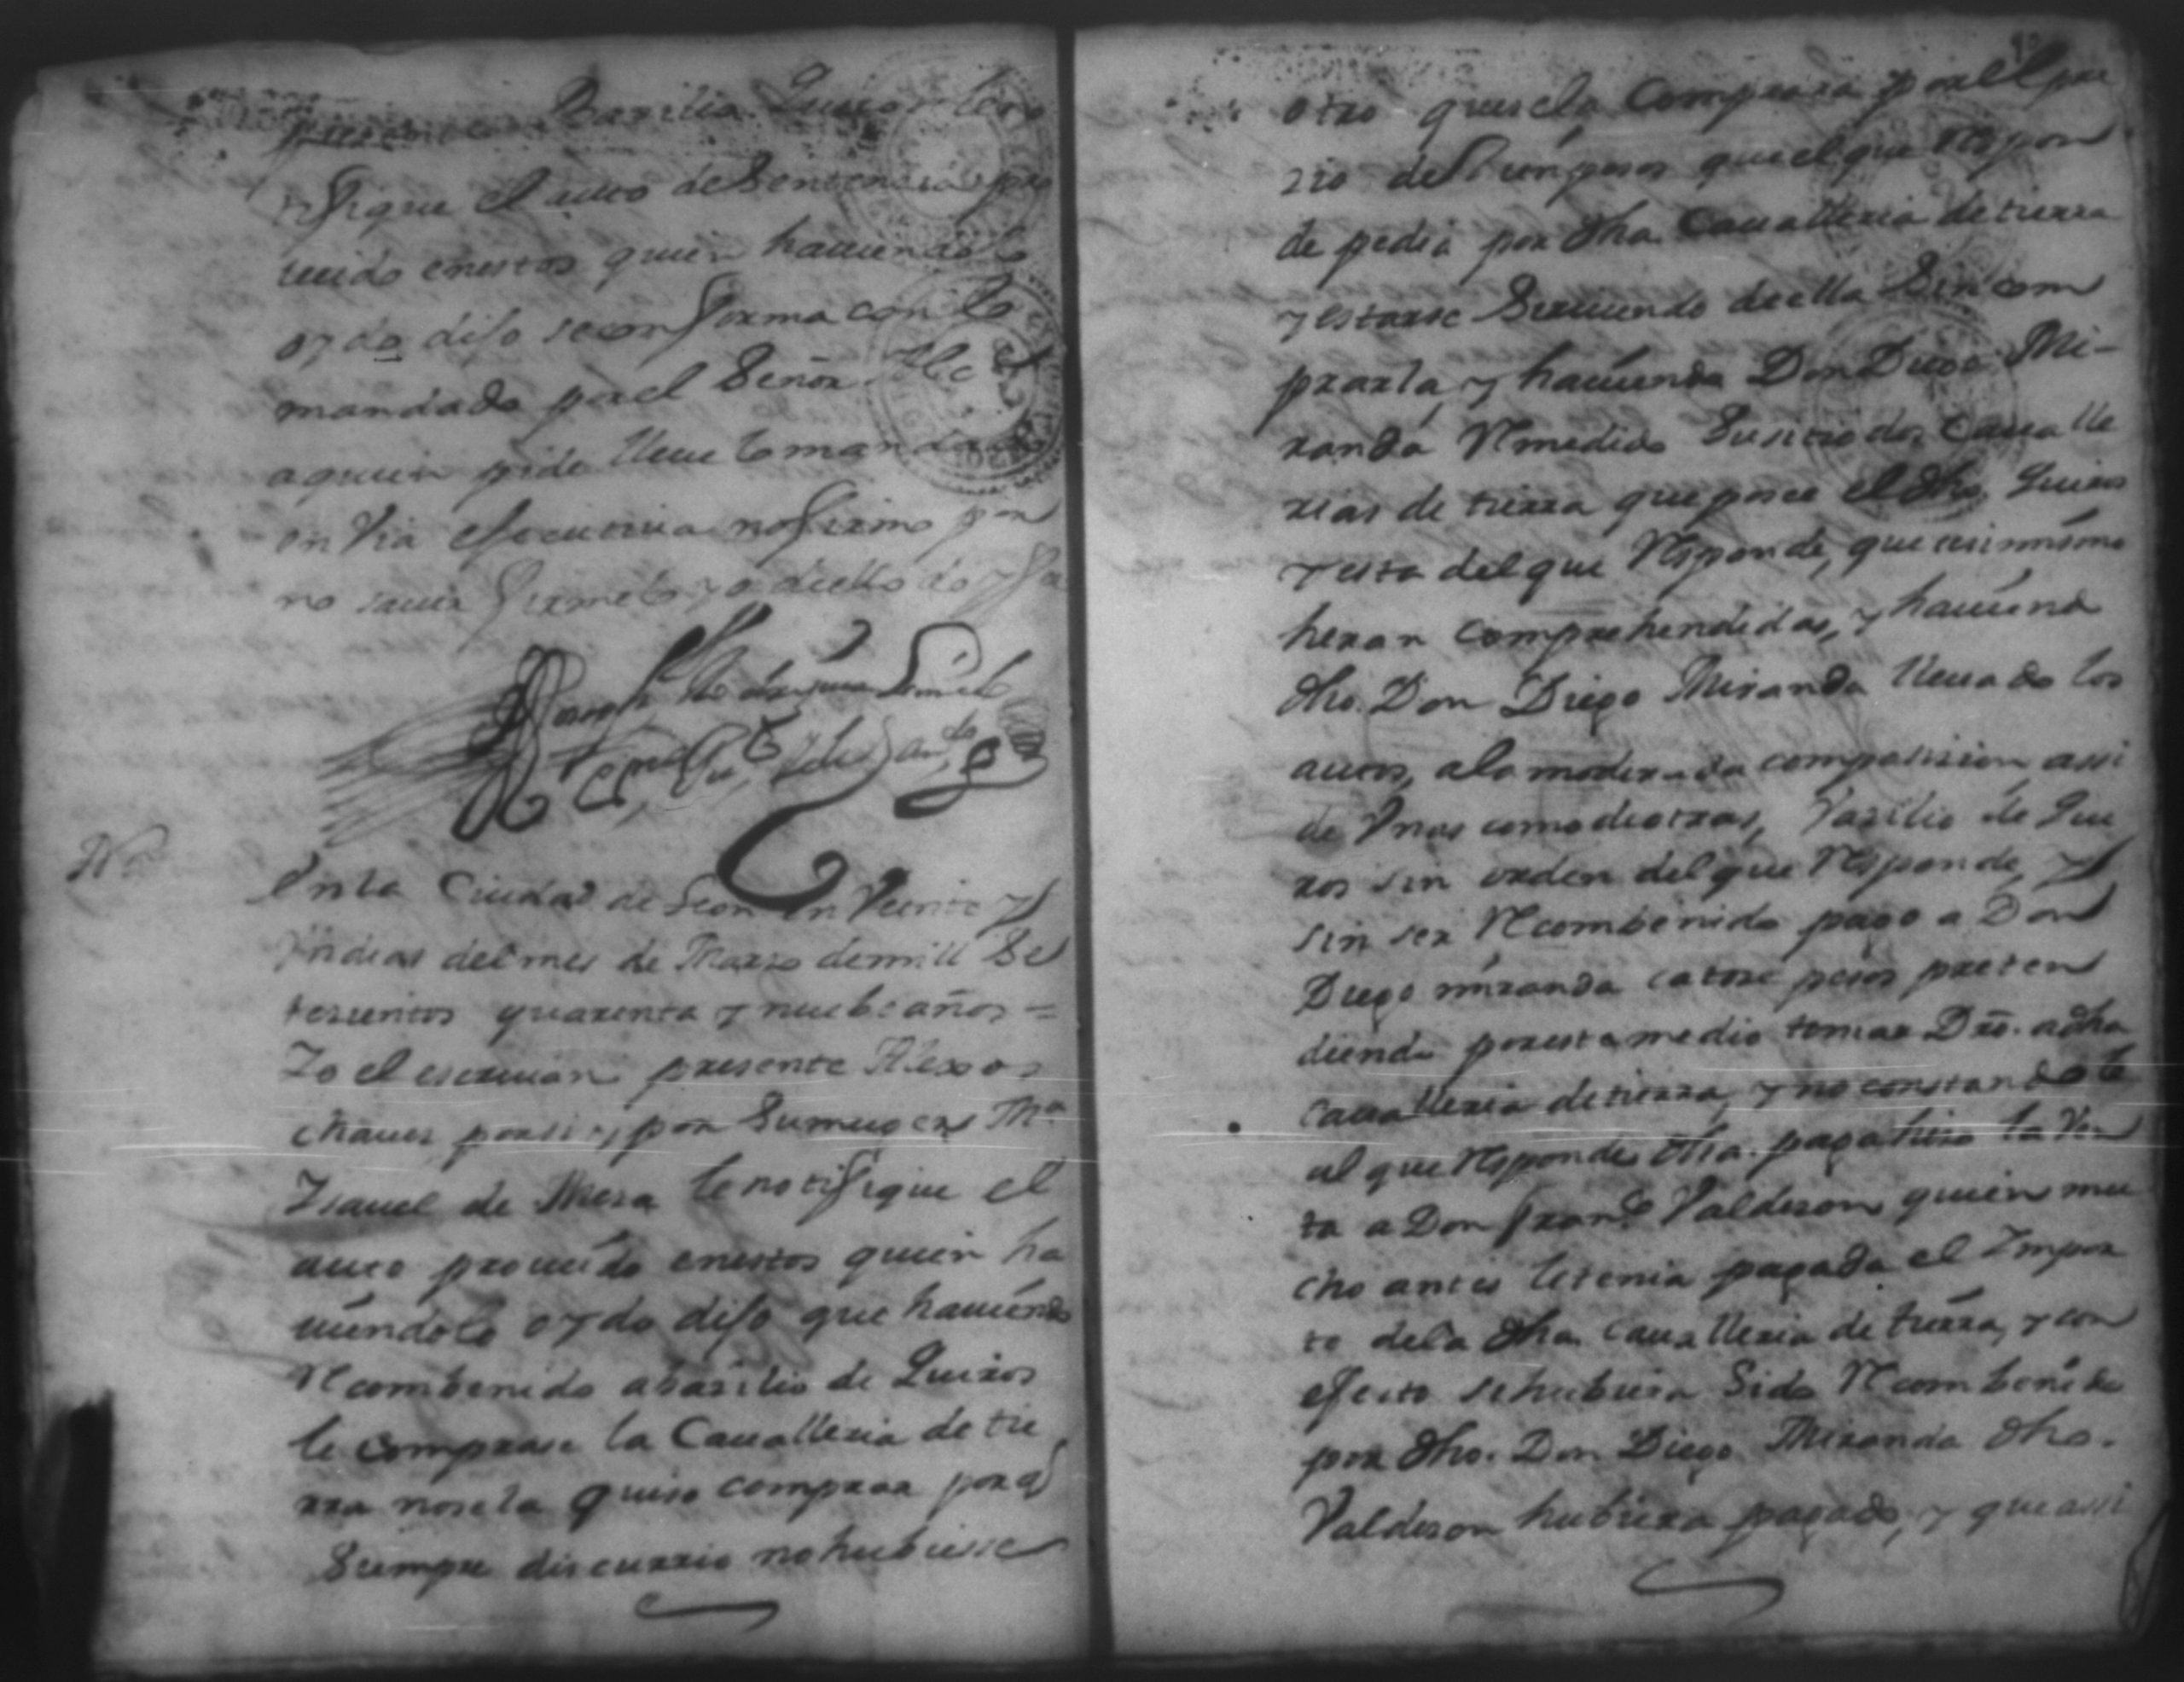 presente Bazilio Quiros le no
tifique el auto de Sentencia pro
ueido enestos quien hauiendolo
oydo dijo se conforma con lo
mandado por el Señor
aquien pide lleue lo mandado
en Via executiua no firmo por
no sauer firmelo yo de ello doy fee
Nn
En la Ciudad de Leon en Veinte y
Vn dias del mes de Marzo de mill Se
tesientos quarenta y nuebe años =
Yo el escriuano presente Alexos
chaues por si y por su muger Ma
Ysauel de Mesa le notifique el
auto proueido enestos quien ha
uiendolo oydo dijo que hauiendo
Recombenido abazilio de Quiros
le comprase la Caualleria de tie
rra nosela quiso comprar por q
Siempre discurrio no hubiesse
90
otro quesela Comprara por el pre
zio de Sien pesos que el que respon
de pedia por dha Caualleria de tierra
y estarse Siruiendo de ella Sin com
prarla, y hauiendo Don Diego Mi-
randa Remedido Su sitio dos Caualle
rias de tierra que posee el dho. Quiros
y esta del que Responde, que asi mismo
heran comprehendidas, y hauiend
dho. Don Diego Miranda lleuado los
autos, ala moderada composision assi
de Vnas como de otras, Vazilio de Qui
ros sin orden del que Responde, y
sin ser Recombenido pago a Don
Diego miranda catorse pesos preten
diendo por este medio tomar Dro. a dha
Caualleria de tierra, y no constandole
al que Responde dha. paga hizo la Ven
ta a Don Franco Valdeson quien mu
cho antes le tenia pagada el Impor
te dela dha Caualleria de tierra, y con
efecto si hubiera Sido Recombenido
por dho. Don Diego Miranda dho.
Valdeson hubiera pagado, y que assi